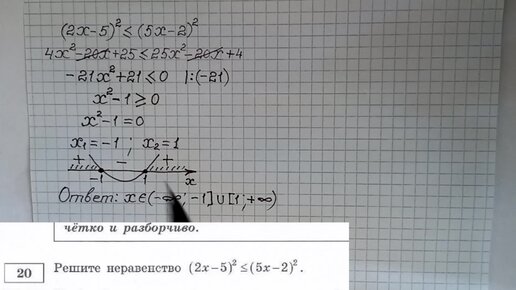 (2x-5)² ≤ (5x-2)²
4x²-20x+25 ≤ 25x²-20x+4
-21x²+21 ≤ 0 |:(-21)
x²-1 ≥ 0
x²-1=0
x₁=-1 ; x₂=1
+ - +
-1 1 x
Ответ: x∈(-∞;-1]∪[1;+∞)
чётко и разборчиво.
20 Решите неравенство (2x-5)² ≤ (5x-2)².